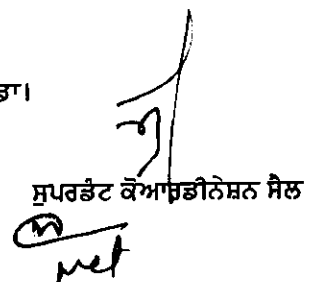 ਡਾ।
ਸੁਪਰਡੰਟ ਕੋਆਰਡੀਨੇਸ਼ਨ ਸੈਲ